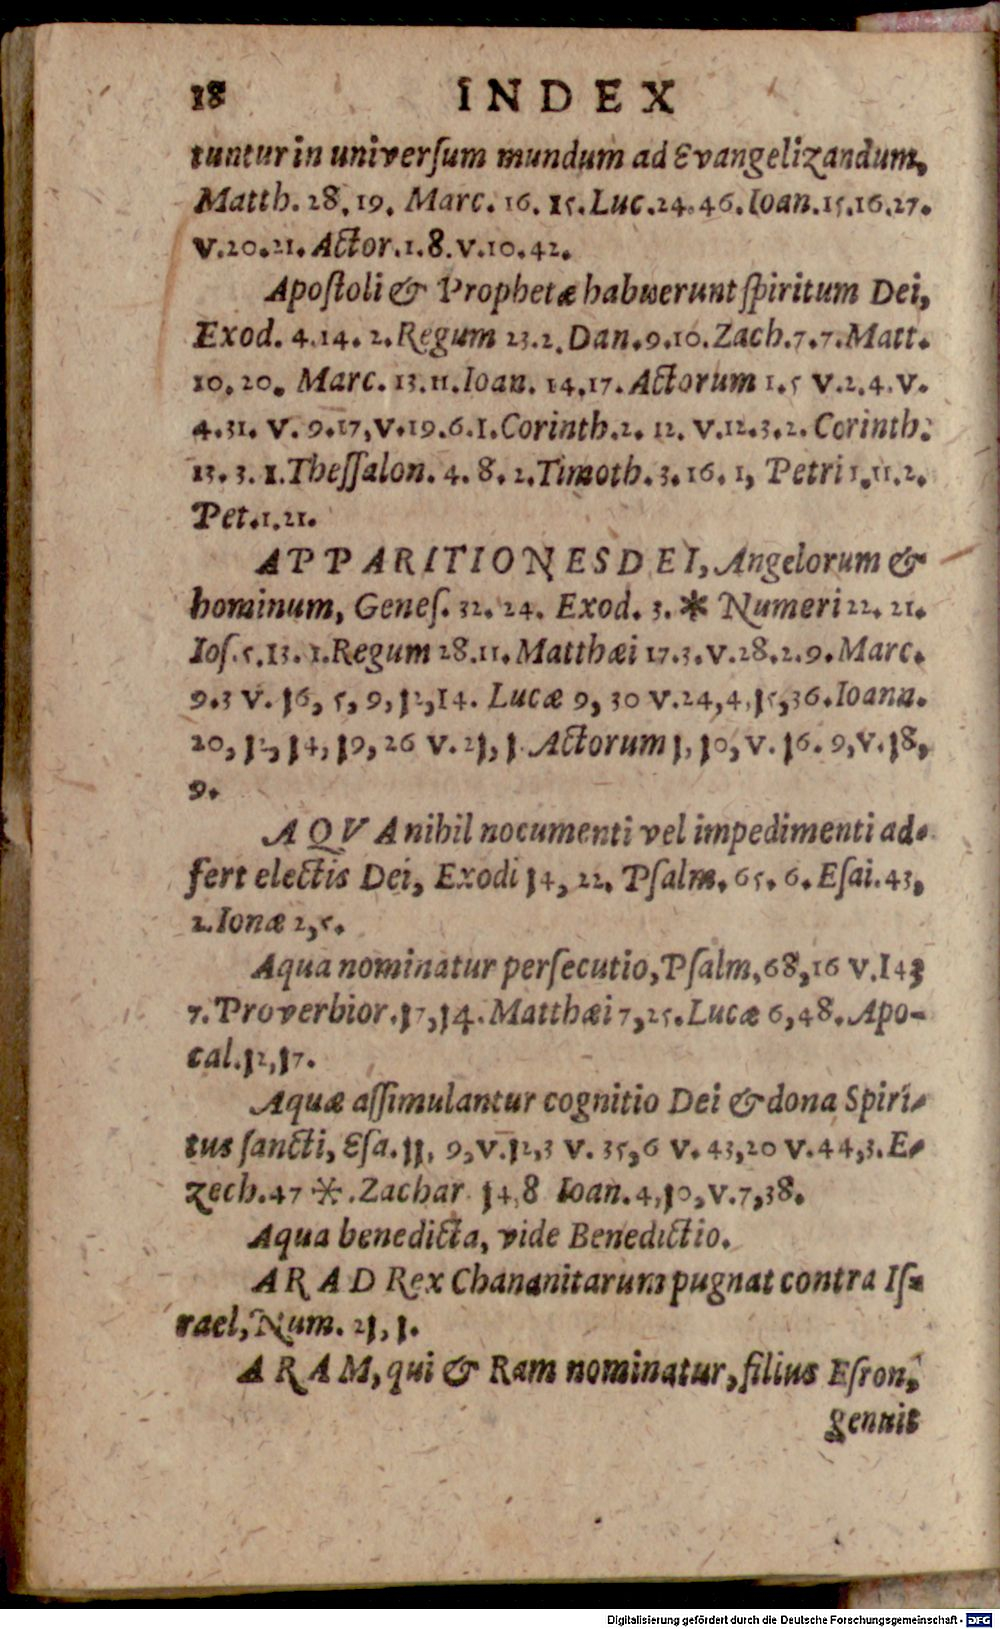 18 INDEX
tuntur in univerſum mundum ad Evangelizandum,
Matth. 28. 19. Marc. 16. 15. Luc. 24. 46. Ioan. 15. 16. 27.
v. 20. 21. Actor. 1. 8. v. 10. 42.
Apoſtoli & Prophetæ habuerunt ſpiritum Dei,
Exod. 4. 14. 2. Regum 23. 2. Dan. 9. 10. Zach. 7. 7. Matt.
10. 20. Marc. 13. 11. Ioan. 14. 17. Actorum 1. 5 v. 2. 4. v.
4. 31. v. 9. 17, v. 19. 6. 1. Corinth. 2. 12. v. 12. 3. 2. Corinth.
13. 3. 1. Theſſalon. 4. 8. 2. Timoth. 3. 16. 1, Petri 1. 11. 2.
Pet. 1. 21.
APPARITIONES DEI, Angelorum &
hominum, Geneſ. 32. 24. Exod. 3. * Numeri 22. 21.
Ioſ. 5. 13. 1. Regum 28. 11. Matthæi 17. 3. v. 28. 2. 9. Marc.
9. 3 v. 16, 5, 9, 12, 14. Lucæ 9, 30 v. 24, 4, 15, 36. Ioann.
20, 12, 14, 19, 26 v. 21, 1. Actorum 1, 10, v. 16. 9, v. 18,
9.
AQVA nihil nocumenti vel impedimenti ad-
fert electis Dei, Exodi 14, 22. Pſalm. 65. 6. Eſai. 43,
2. Ionæ 2, 5.
Aqua nominatur perſecutio, Pſalm. 68, 16 v. 143
7. Proverbior. 17, 14. Matthæi 7, 25. Lucæ 6, 48. Apo-
cal. 12, 17.
Aquæ aſſimulantur cognitio Dei & dona Spiri-
tus ſancti, Eſa. 11, 9, v. 12, 3 v. 35, 6 v. 43, 20 v. 44, 3. E-
zech. 47 *. Zachar 14, 8 Ioan. 4, 10, v. 7, 38.
Aqua benedicta, vide Benedictio.
ARAD Rex Chananitarum pugnat contra Iſ-
rael, Num. 21, 1.
ARAM, qui & Ram nominatur, filius Eſron,
genuit
Digitalisierung gefördert durch die Deutsche Forschungsgemeinschaft - DFG